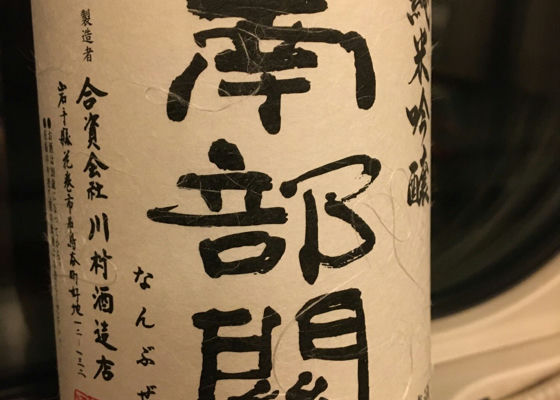 純米吟醸
南部関
なんぶぜ
製造者
合資会社川村酒造店
岩手県花巻市石鳥谷町好地一二―一三二